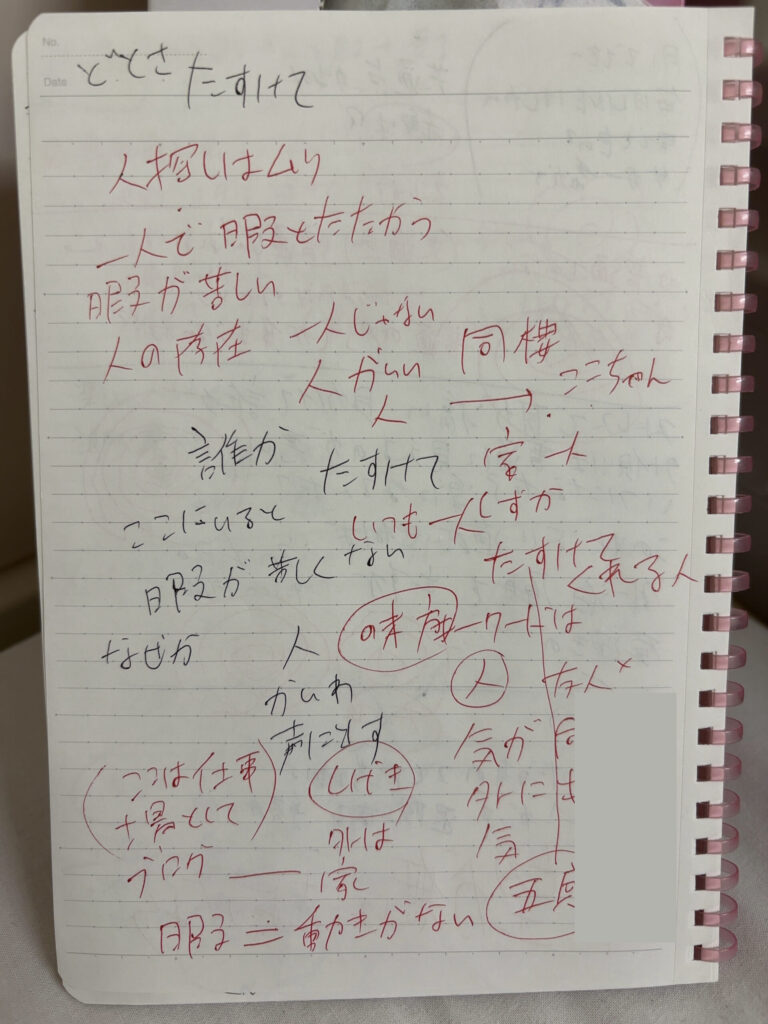 No.
Date
たすけて
人探しはムリ
一人で暇とたたかう
暇が苦しい
人の存在
一人じゃない
人がいい
人
同棲
→ ここちゃん
誰か
たすけて
家 一人
ここにいると
いつも一人しずか
暇が苦しくない
たすけて
くれる人
なぜか
人
キーワードは
かいわ
人
友人×
声にだす
気が
(ここは仕事
しげき
外に
場として
外は
気
ブログ
家
五
暇=動きがない